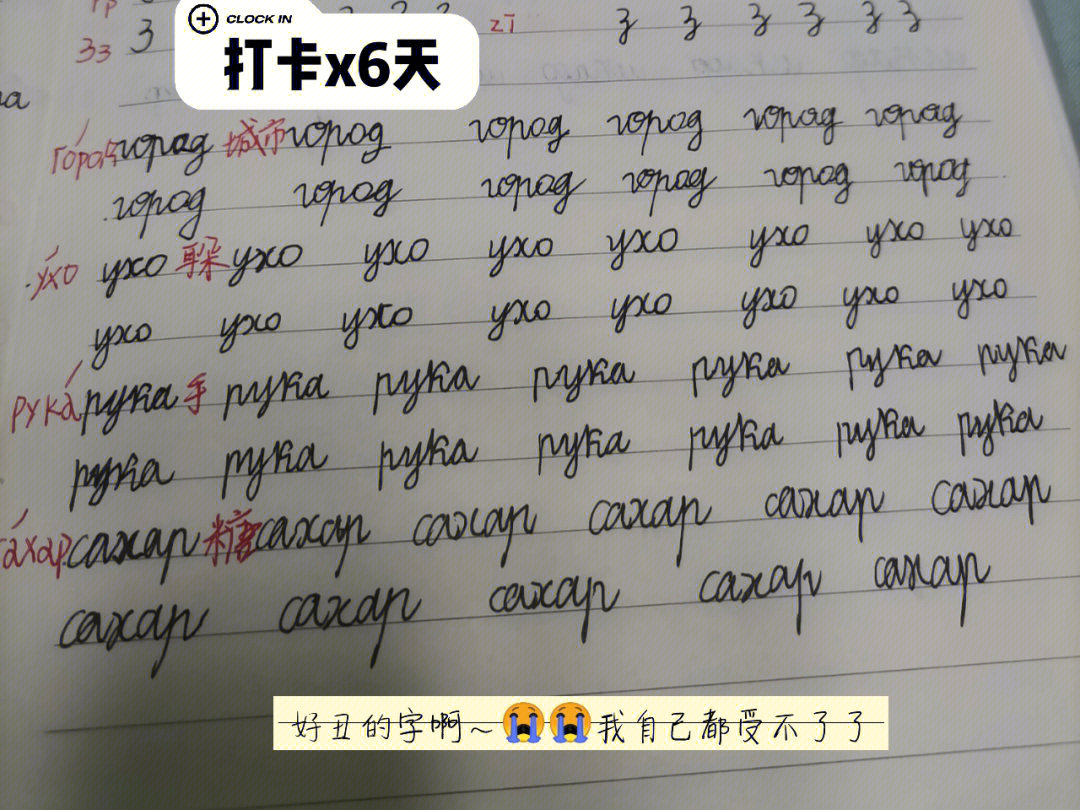 CLOCK IN
打卡x6天
Зз З zī з з з з з з
го́род город 城市 город город город город город
город город город город город город
у́хо ухо 耳朵 ухо ухо ухо ухо ухо ухо ухо
ухо ухо ухо ухо ухо ухо ухо ухо
рука́ рука 手 рука рука рука рука рука рука
рука рука рука рука рука рука рука
са́хар сахар 糖 сахар сахар сахар сахар сахар
сахар сахар сахар сахар сахар
好丑的字啊~😭😭我自己都受不了了